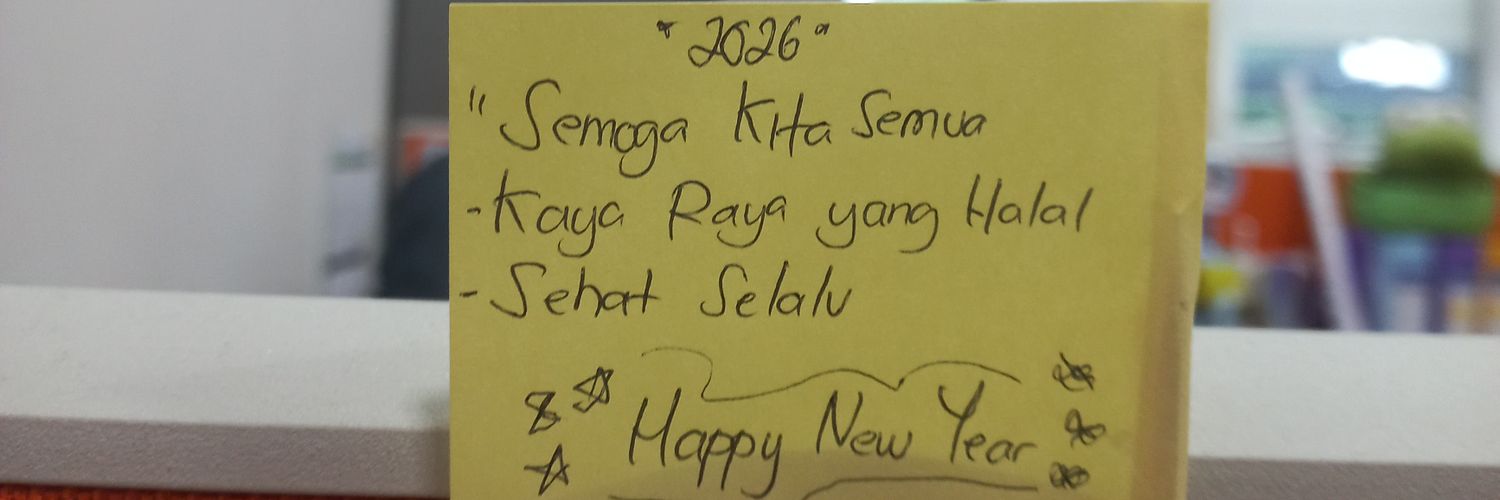 "2026"
"Semoga Kita Semua
-Kaya Raya yang Halal
-Sehat Selalu
Happy New Year